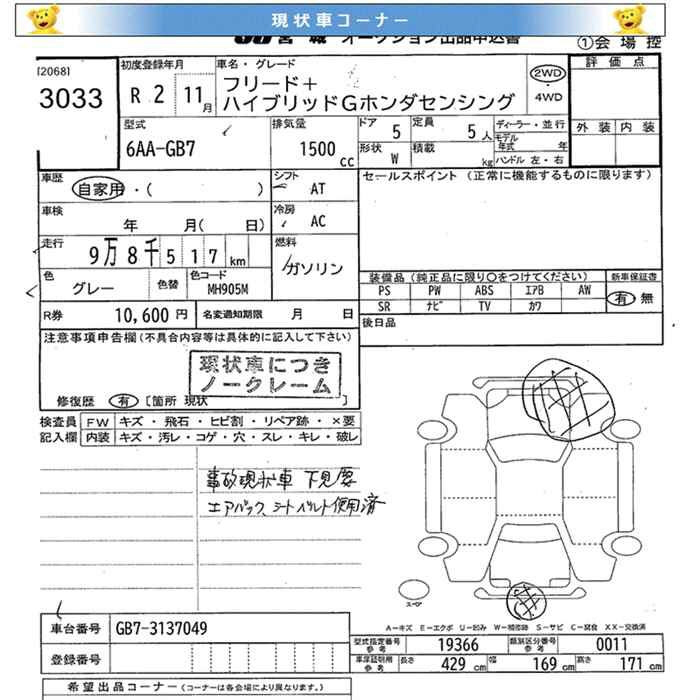 現状車コーナー
JU 宮城 オークション出品申込書
①会場控
[2068]
3033
初度登録年月
R 2 11月
車名・グレード
フリード+
ハイブリッドGホンダセンシング
2WD
4WD
評価点
外装 内装
型式
6AA-GB7
排気量
1500 cc
ドア 5
定員 5人
形状 W
積載 kg
ディーラー・並行
モデル年式 年
ハンドル 左・右
車歴
自家用・( )
シフト AT
セールスポイント (正常に機能するものに限ります)
車検
年 月( 日)
冷房 AC
走行
9万8千517km
燃料
ガソリン
色
グレー
色替
色コード
MH905M
装備品(純正品に限り○をつけてください)
PS PW ABS エアB AW
SR ナビ TV カワ
新車保証書
有 無
R券 10,600円
名変通知期限 月 日
後日品
注意事項申告欄(不具合内容等は具体的に記入して下さい)
現状車につき
ノークレーム
修復歴 有 〔箇所 現状 〕
検査員記入欄
FW キズ・飛石・ヒビ割・リペア跡・×要
内装 キズ・汚レ・コゲ・穴・スレ・キレ・破レ
事故現状車 下見要
エアバック、シートベルト使用済
スペア
A－キズ E－エクボ U－凹み W－補修跡 S－サビ C－腐食 XX－交換済
車台番号 GB7-3137049
登録番号
型式指定番号 参考 19366
類別区分番号 参考 0011
車庫証明用 参考 長さ 429 cm 幅 169 cm 高さ 171 cm
希望出品コーナー (コーナーは各会場により異なります。)